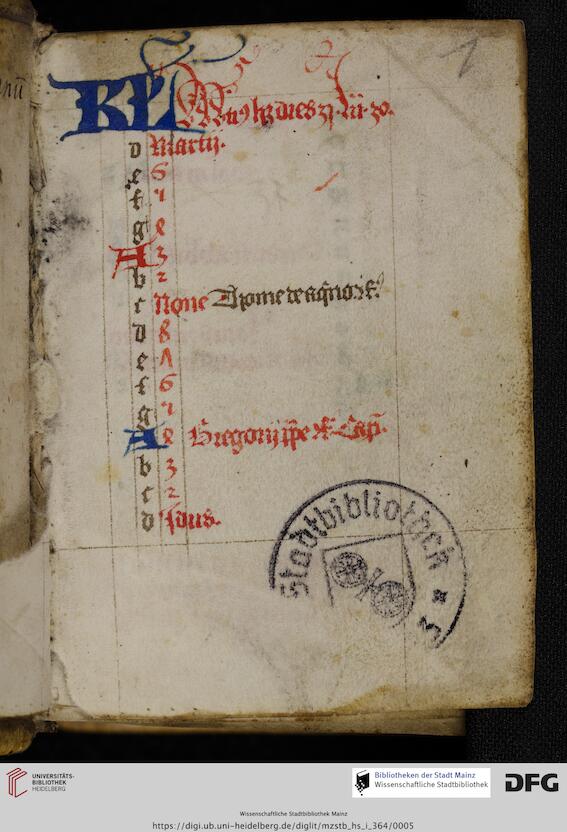 1
KL Martius hz dies 31 lu 30.
d Martij.
e 6
f 5
g 4
A 3
b 2
c None Thome de aqno
d 8
e 7
f 6
g 5
A 4 Gregorij ppe
b 3
c 2
d Jdus.
Stadtbibliothek
UNIVERSITÄTS-
BIBLIOTHEK
HEIDELBERG
Bibliotheken der Stadt Mainz
Wissenschaftliche Stadtbibliothek
DFG
Wissenschaftliche Stadtbibliothek Mainz
https://digi.ub.uni-heidelberg.de/diglit/mzstb_hs_i_364/0005